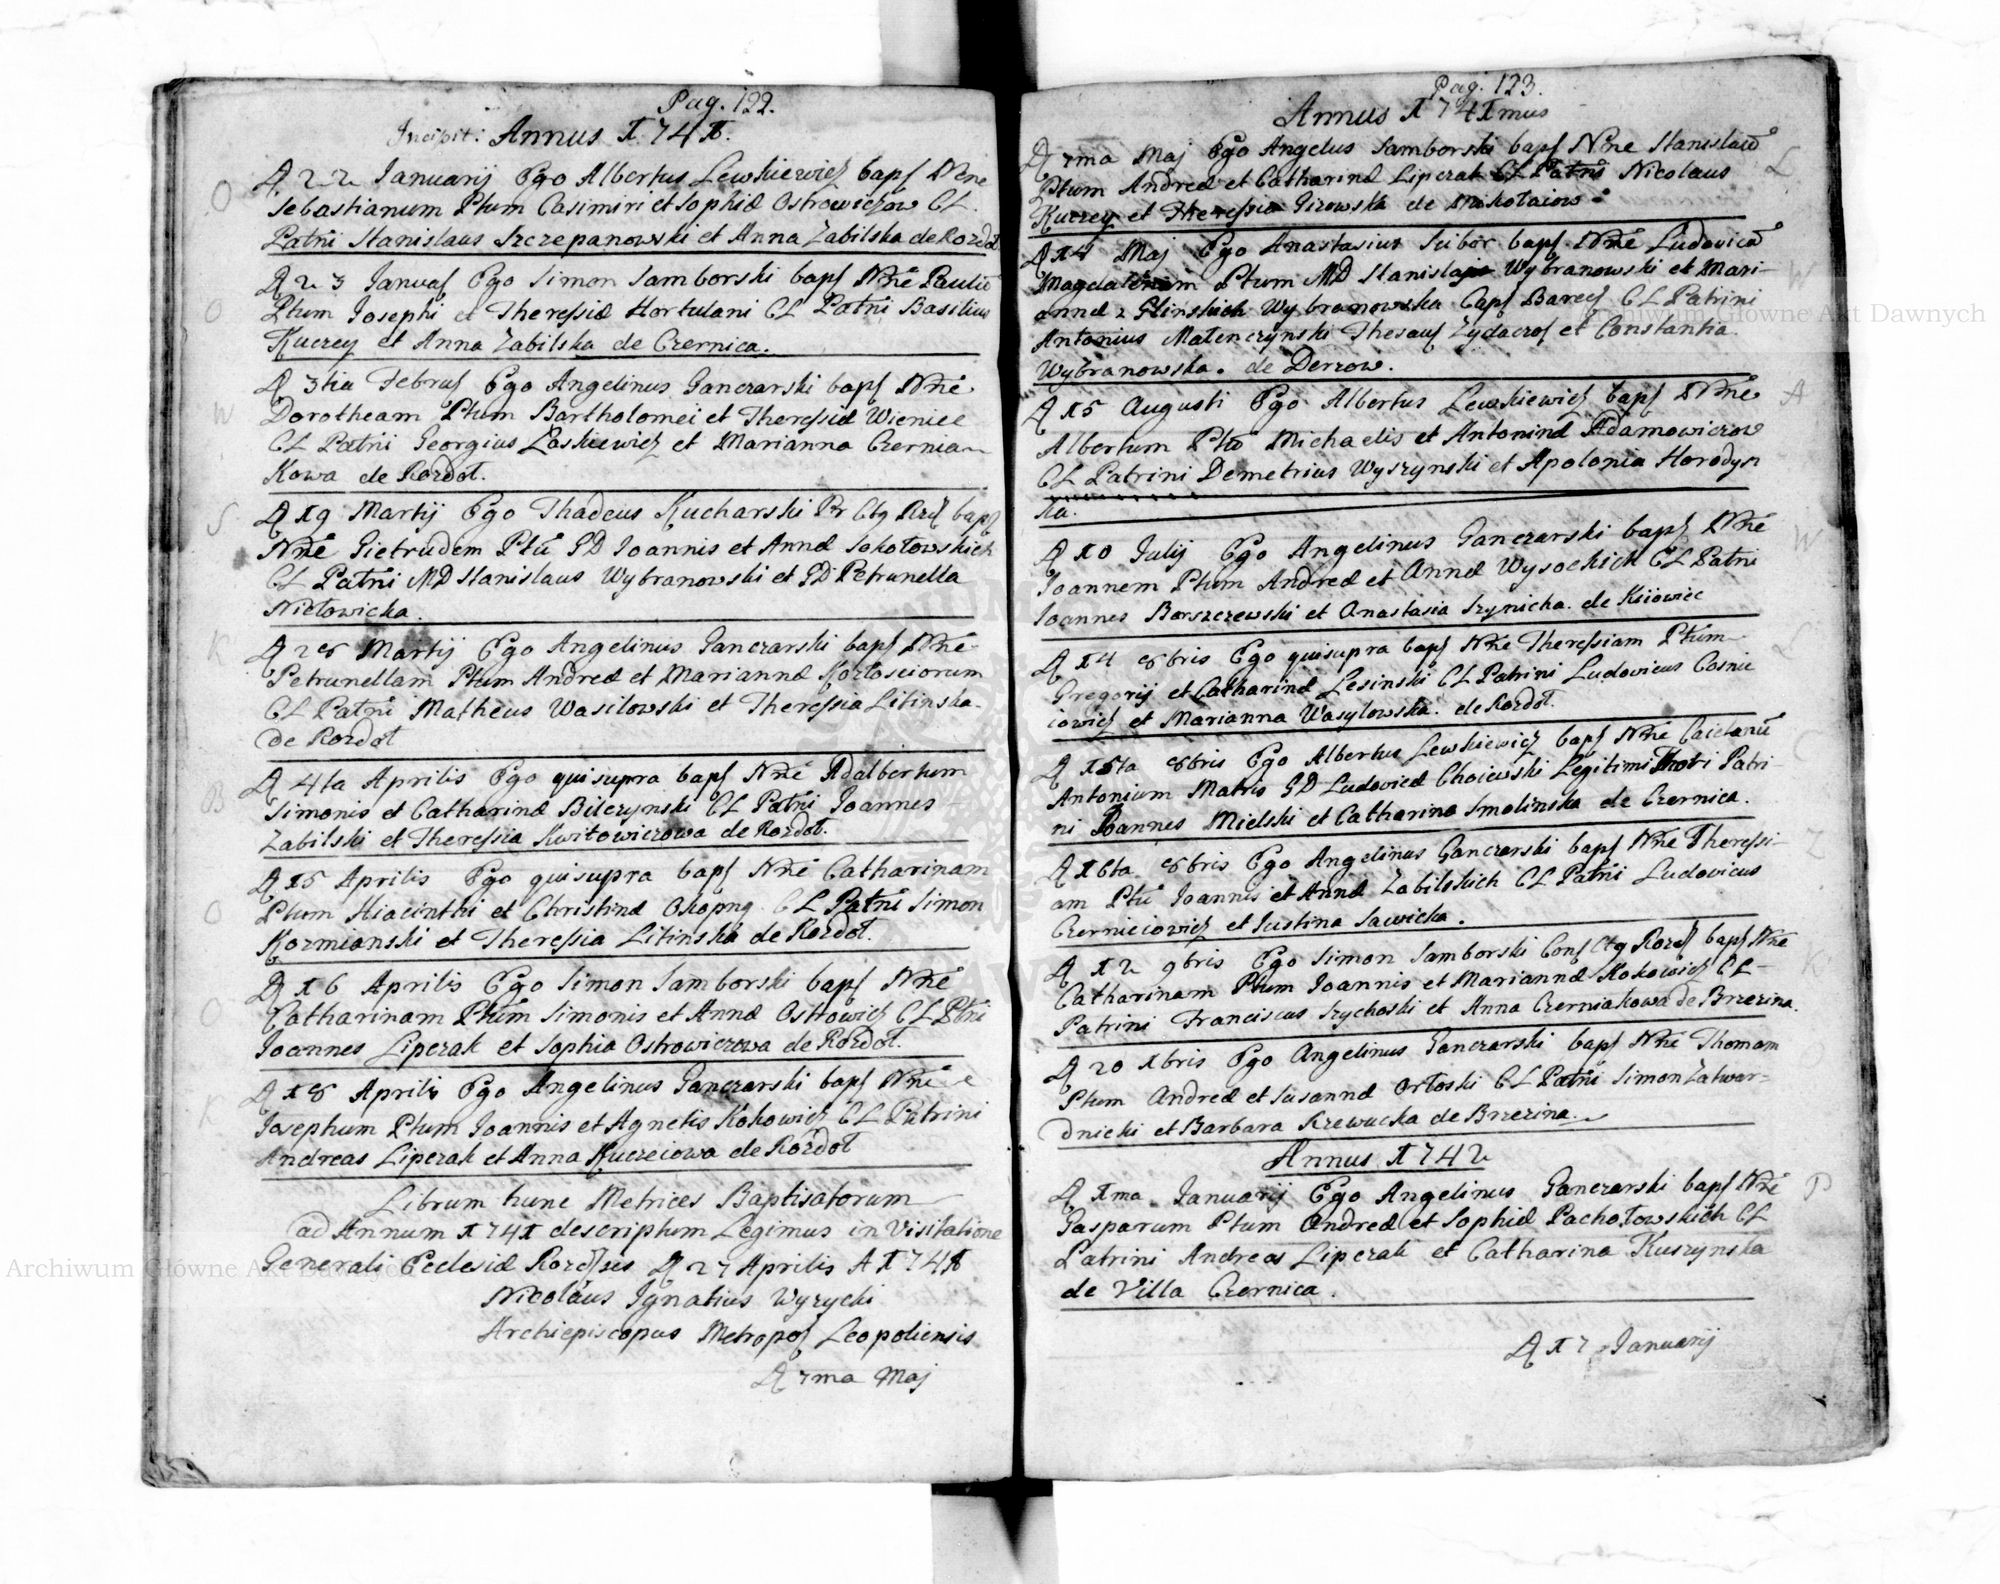 Pag. 122.
Incipit: Annus 1741.
D 22 Januarij Ego Albertus Lewkiewicz bapt Nne
Sebastianum Ptum Casimiri et Sophiæ Ostrowiczow CL.
Patni Stanislaus Szczepanowski et Anna Zabilska de Rozdoł
D 23 Januar Ego Simon Samborski bapt Nne Paulū
Ptum Josephi et Theressiæ Hortulani CL Patni Basilius
Kuczey et Anna Zabilska de Czernica.
D 3tia Febru Ego Angelinus Ganczarski bapt Nne
Dorotheam Ptum Bartholomei et Theressiæ Wieniec
CL Patni Georgius Laskiewicz et Marianna Czernia-
kowa de Rozdoł.
D 19 Martij Ego Thadeus Kucharski Pr Ctg Roz bapt
Nne Gietrudem Ptū GD Joannis et Annæ Sokołowskich
CL Patni MD Stanislaus Wybranowski et GD Petrunella
Niełowicka.
D 28 Martij Ego Angelinus Ganczarski bapt Nne
Petrunellam Ptum Andreæ et Mariannæ Kozłosciorum
CL Patni Matheus Wasilowski et Theressia Litinska
de Rozdoł
D 4ta Aprilis Ego qui supra bapt Nne Adalbertum
Simonis et Catharinæ Bilczynski CL Patni Joannes
Zabilski et Theressia Kwitowiczowa de Rozdoł.
D 15 Aprilis Ego qui supra bapt Nne Catharinam
Ptum Hiacinthi et Christinæ Okopny CL Patni Simon
Kozmianski et Theressia Litinska de Rozdoł.
D 16 Aprilis Ego Simon Samborski bapt Nne
Catharinam Ptum Simonis et Annæ Ostrowicz CL Ptni
Joannes Liperak et Sophia Ostrowiczowa de Rozdoł.
D 18 Aprilis Ego Angelinus Ganczarski bapt Nne
Josephum Ptum Joannis et Agnetis Kokowicz CL Patrini
Andreas Liperak et Anna Kuczeiowa de Rozdoł
Librum hunc Metrices Baptisatorum
ad Annum 1741 descriptum Legimus in Visitatione
Generali Ecclesiæ Rozdłses D 27 Aprilis A 1741
Nicoláus Ignatius Wyzycki
Archiepiscopus Metropol Leopoliensis
D 7ma Maj
Pag. 123.
Annus 1741mus
D 7ma Maj Ego Angelus Samborski bapt Nne Stanislaū
Ptum Andreæ et Catharinæ Liperak CL Patni Nicolaus
Kuczey et Theressia Girowska de Mikołaiow
D 14 Maj Ego Anastasius Scibor bapt Nne Ludovicā
Magdalenam Ptum MD Stanislai Wybranowski et Mari-
annæ z Glinskich Wybranowska Capt Barec CL Patrini
Antonius Matenczynski Thesau Zydacro et Constantia
Wybranowska. de Derzow.
D 15 Augusti Ego Albertus Lewkiewicz bapt Nne
Albertum Ptū Michaelis et Antoninæ Adamowiczow
CL Patrini Demetrius Wyszynski et Apolonia Horodyn
ka.
D 10 Julij Ego Angelinus Ganczarski bapt Nne
Joannem Ptum Andreæ et Annæ Wysockich CL Patni
Joannes Borszczewski et Anastasia Szynicha. de Ksiowiec
D 14 8bris Ego quisupra bapt Nne Theressiam Ptum
Gregorij et Catharinæ Lesinski CL Patrini Ludovicus Cosnie
iowicz et Marianna Wasylowska. de Rozdoł.
D 15ta 8bris Ego Albertus Lewkiewicz bapt Nne Caietanū
Antonium Matris GD Ludovicæ Choiewski Legitimi Thori Patri-
ni Joannes Mielski et Catharina Smolinska de Czernica.
D 16ta 8bris Ego Angelinus Ganczarski bapt Nne Theressi-
am Ptū Joannis et Annæ Zabilskich CL Patni Ludovicus
Czerniciowicz et Justina Sawicka.
D 12 9bris Ego Simon Samborski Conf Ctg Rozd bapt Nne
Catharinam Ptum Joannis et Mariannæ Kokowicz CL
Patrini Franciscus Szychoski et Anna Czerniakowa de Brzezina.
D 20 Xbris Ego Angelinus Ganczarski bapt Nne Thomam
Ptum Andreæ et Susannæ Orłoski CL Patni Simon Zatwar-
dnicki et Barbara Krzewucka de Brzezina.
Annus 1742
D 1ma Januarij Ego Angelinus Ganczarski bapt Nne
Gasparum Ptum Andreæ et Sophiæ Pachołowskich CL
Patrini Andreas Liperak et Catharina Kuszynska
de Villa Czernica.
D 17 Januarij
Archiwum Główne Akt Dawnych
Archiwum Główne Akt Dawnych